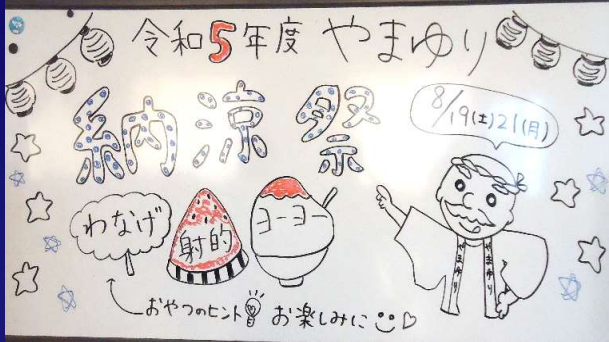 令和5年度 やまゆり
納涼祭
8/19(土)21(月)
わなげ
射的
ヨーヨー
やまゆり
やまゆり
おやつのヒント お楽しみに